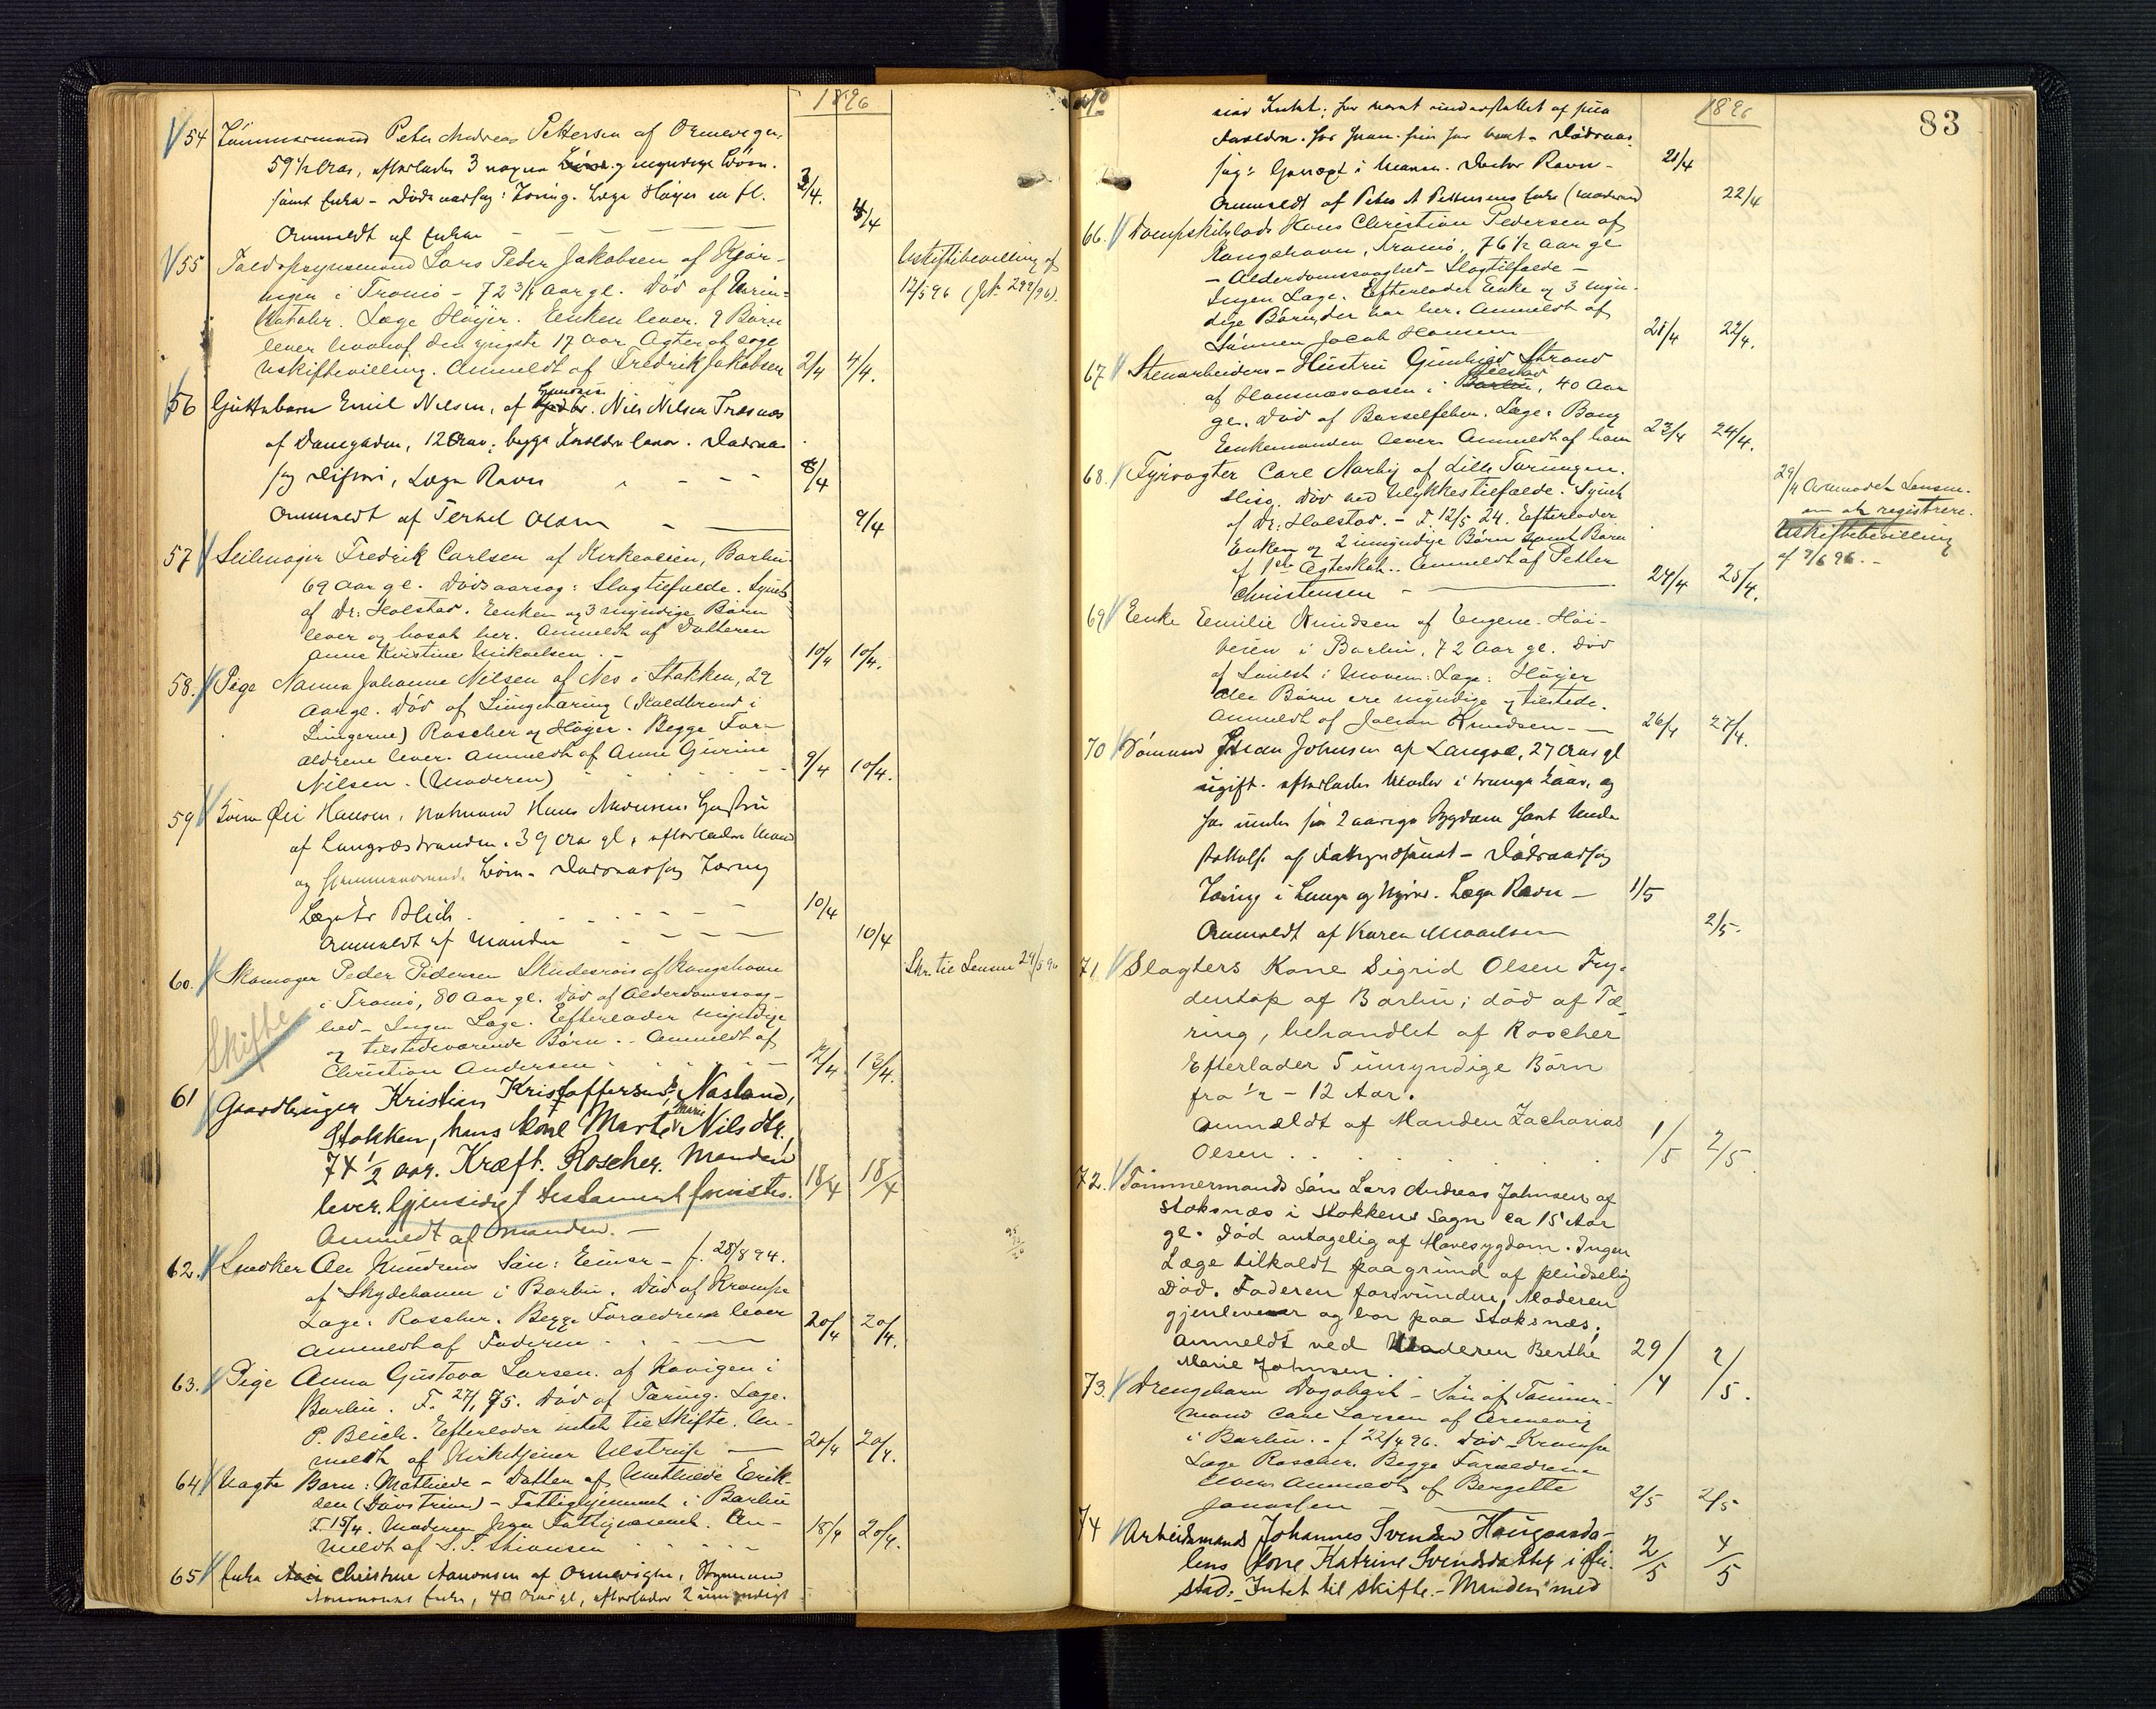 1896
54 Tømmermand Peter Andreas Pettersen af Ormevigen,
59 1/2 Aar, efterlader 3 myndige Børn
samt Enke - Dødsaarsag: Tæring. Læge Høyer
3/4.
Anmeldt af Enken
4/4
55 Toldopsynsmand Lars Peder Jakobsen af
i Tromø - 72 3/4 Aar gl. Død af Urin-
. Læge Höyer. Enken lever. 9 Børn
lever hvoraf den yngste 17 Aar. Agter at søge
uskiftebevilling. Anmeldt af Fredrik Jakobsen 2/4 4/4.
Uskiftebevilling af
12/5 96 (J.N. 299/96).
56 Guttebarn Emil Nilsen, af Nils Nilsen Træsnæs
af , 12 Aar, begge Forældre lever. Dødsaar-
sag Difteri, Læge Ravn 8/4
Anmeldt af Terkel Olsen 9/4
57 Seilmager Fredrik Carlsen af Kirkeveien, Barbu
69 Aar gl. Dødsaarsag: Slagtilfælde. Synet
af Dr: Holstad. Enken og 3 myndige Børn
lever og bosat her. Anmeldt af Datteren
Anna Kristine Mikaelsen. - 10/4 10/4.
58. Pige Nanna Johanne Nilsen af Nes i Stokken, 29
Aar gl. Død af Lungetæring (Koldbrand i
Lungerne) Roscher og Höyer. Begge For-
ældrene lever. Anmeldt af Anne Gurine
Nilsen. (Moderen) 9/4 10/4.
59 Hansen, Hans Hustru
af Langsæstranden. 39 Aar gl, efterlader Mand
og Børn - Dødsaarsag Tæring
Læge Er Bleich. 10/4
Anmeldt af Manden 10/4
60. Skomager Peder Pedersen af Kongshavn
i Tromø, 80 Aar gl. Død af Alderdomssvag-
hed - Ingen Læge. Efterlader myndige
og tilstedeværende Børn. - Anmeldt af
Christian Andersen 12/4 13/4.
Skifte
Skr. til Lensm 24/5 96
61 Gaardbruger Kristian Kristoffersen Næsland,
Stokken, hans kone Marte Marie Nilsdtr.,
74 1/2 aar. Kræft. Roscher. Manden
lever. Gjensidigt testament 18/4 18/4
Anmeldt af Manden. -
62. Snedker Ole Knudsens Søn: Einar - f. 28/8 94.
af Skydebanen i Barbu. Død af Krampe
Læge: Roscher. Begge Forældrene lever
Anmeldt af Faderen 20/4 20/4.
63. Pige Anna Gustava Larsen. af Kavigen i
Barbu. F. 27/1 75. Død af Tæring. Læge.
P. Bleich. Efterlader intet til Skifte. An-
meldt af Kirketjener Ulstrup - 20/4 20/4.
64 Uægte Barn: Mathilde - Datter af Mathilde Erik-
sen (Døvstum) - Fattighjemmet i Barbu
F. 15/4. Moderen Fattigvæsenet. An-
meldt af S. T. 18/4 20/4.
65 Enke Christine Aanonsen af Ormevigen,
Aanonsens Enke, 40 Aar gl, efterlader 2 umyndige
1896
83
Intet; har været understøttet af
Forældre. før
sag: i Maven. Doctor Ravn - 21/4
Anmeldt af Peter A Pettersens Enke (Moderen) 22/4
66. Dampskibslods Hans Christian Pedersen af
Kongshavn, Tromø, 76 1/2 Aar gl
- Alderdomssvaghed - Slagtilfælde -
Ingen Læge. Efterlader Enke og 3 myn-
dige Børn, der bor her. Anmeldt af
Sønnen Jacob Hansen 21/4 22/4.
67 Stenarbeiders - Hustru Gunhild Strand
af i , 40 Aar
gl. Død af Barselfeber. Læge: Bang
Enkemanden lever Anmeldt af ham 23/4 24/4.
68. Fyrvogter Carl Norby af Lille Torungen.
død ved Ulykkestilfælde. Synet
af Dr: Holstad. - F. 12/5 24. Efterlader
Enken og 2 umyndige Børn samt Børn
af 1ste Ægteskab. - Anmeldt af Petter
Christensen 24/4 25/4.
29/4 Anmodet Lensm.
om at registrere.
Uskiftebevilling
af 9/6 96. -
69 Enke Emilie Knudsen af Høi-
veien i Barbu. 72 Aar gl. Død
af Svulst i Maven. Læge: Höyer
Alle Børn ere myndige og tilstede.
Anmeldt af Johan Knudsen 26/4 27/4.
70 Sømand Johan Johnsen af Langsæ, 27 Aar gl
ugift. efterlader Moder i trange Kaar, og
har under sin 2 aarige Sygdom havt Under-
støttelse af Fattigvæsenet - Dødsaarsag
Tæring i Lunge og Nyrer. Læge Ravn - 1/5
Anmeldt af Karen 2/5.
71. Slagters Kone Sigrid Olsen Fry-
dentop af Barbu; død af Tæ-
ring, behandlet af Roscher
Efterlader 5 umyndige Børn
fra 1/2 - 12 Aar.
Anmældt af Manden Zacharias
Olsen 1/5 2/5
72. Tømmermands Søn Lars Andreas Johnsen af
Stoksnæs i Stokkens Sogn ca 15 Aar
gl. Død antagelig af Mavesygdom. Ingen
Læge tilkaldt paagrund af pludselig
Død. Faderen forsvunden, Moderen
gjenlever og bor paa Stoksnæs;
Anmeldt ved Moderen Berthe
Marie Johnsen. 29/4 2/5.
73. Drengebarn Dagobert - Søn af Tømmer-
mand Carl Larsen af Ormevig
i Barbu. - f 22/4 96. Død - Krampe
Læge Roscher. Begge Forældrene
lever Anmeldt af Bergitte
2/5 2/5
74 Arbeidsmand Johannes Svendsen Haugaasda-
lens kone Katrine Svendsdatter i Øi-
stad. Intet til skifte. - Manden med 2/5 4/5